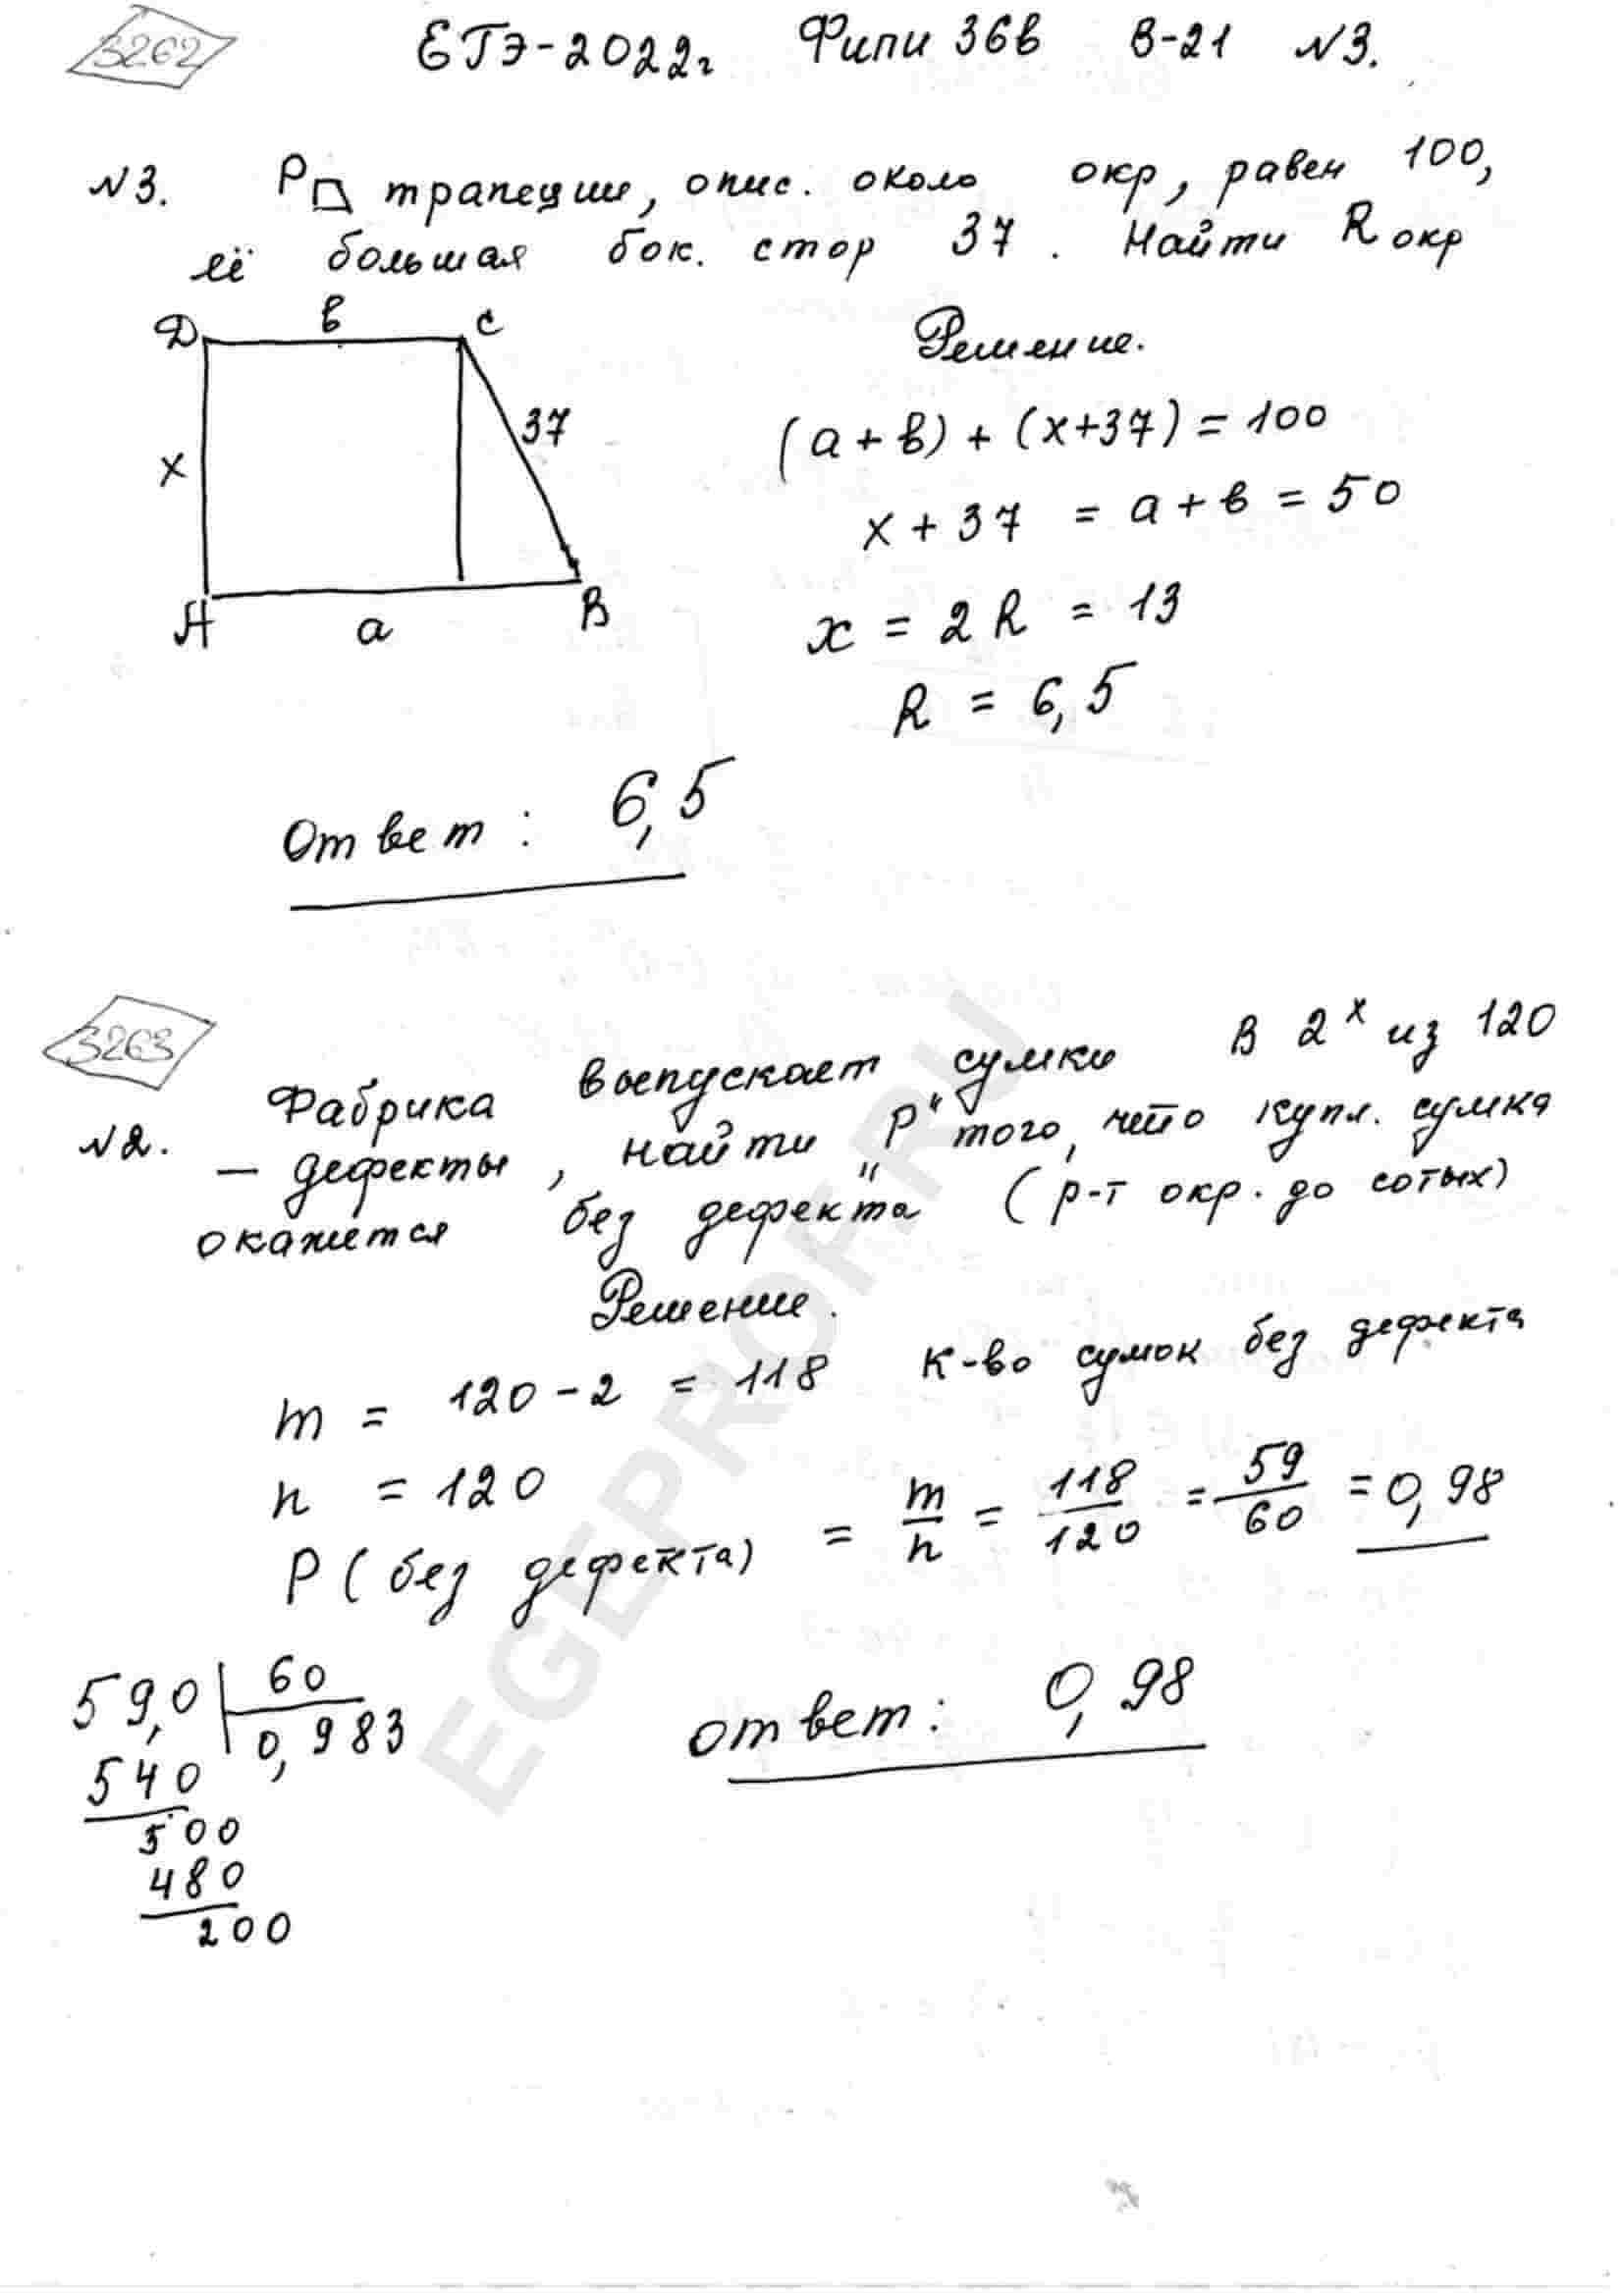 3262 ЕГЭ-2022г Фипи 36в В-21 №3.
№3. P трапеции, опис. около окр, равен 100,
её большая бок. стор 37. Найти R окр
D в C
Решение.
37
(a + в) + (x+37) = 100
x
x + 37 = a + в = 50
A a B
x = 2R = 13
R = 6,5
Ответ: 6,5
3263
№2. Фабрика выпускает сумки В 2х из 120
— дефекты, найти "P" того, что купл. сумка
окажется без дефекта (р-т окр. до сотых)
Решение.
m = 120-2 = 118 к-во сумок без дефекта
n = 120
P(без дефекта) = m/n = 118/120 = 59/60 = 0,98
59,0 | 60
540 0,983
500
480
200
ответ: 0,98
EGEPROF.RU